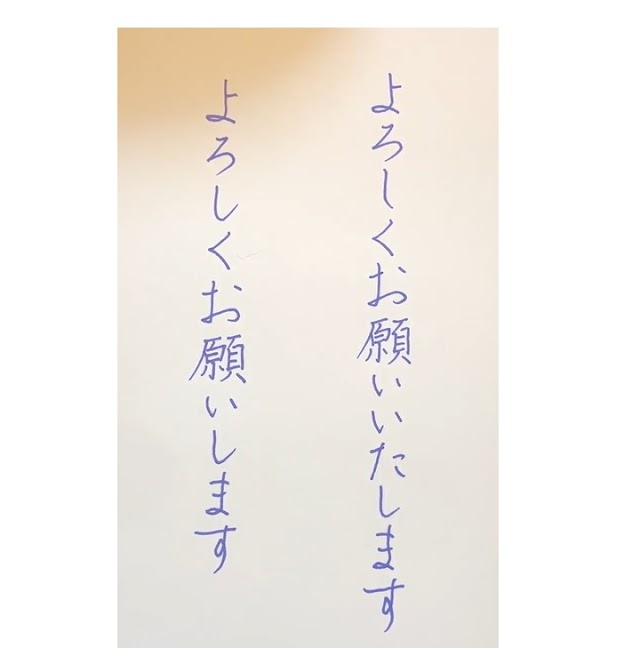 よろしくお願いいたします
よろしくお願いします